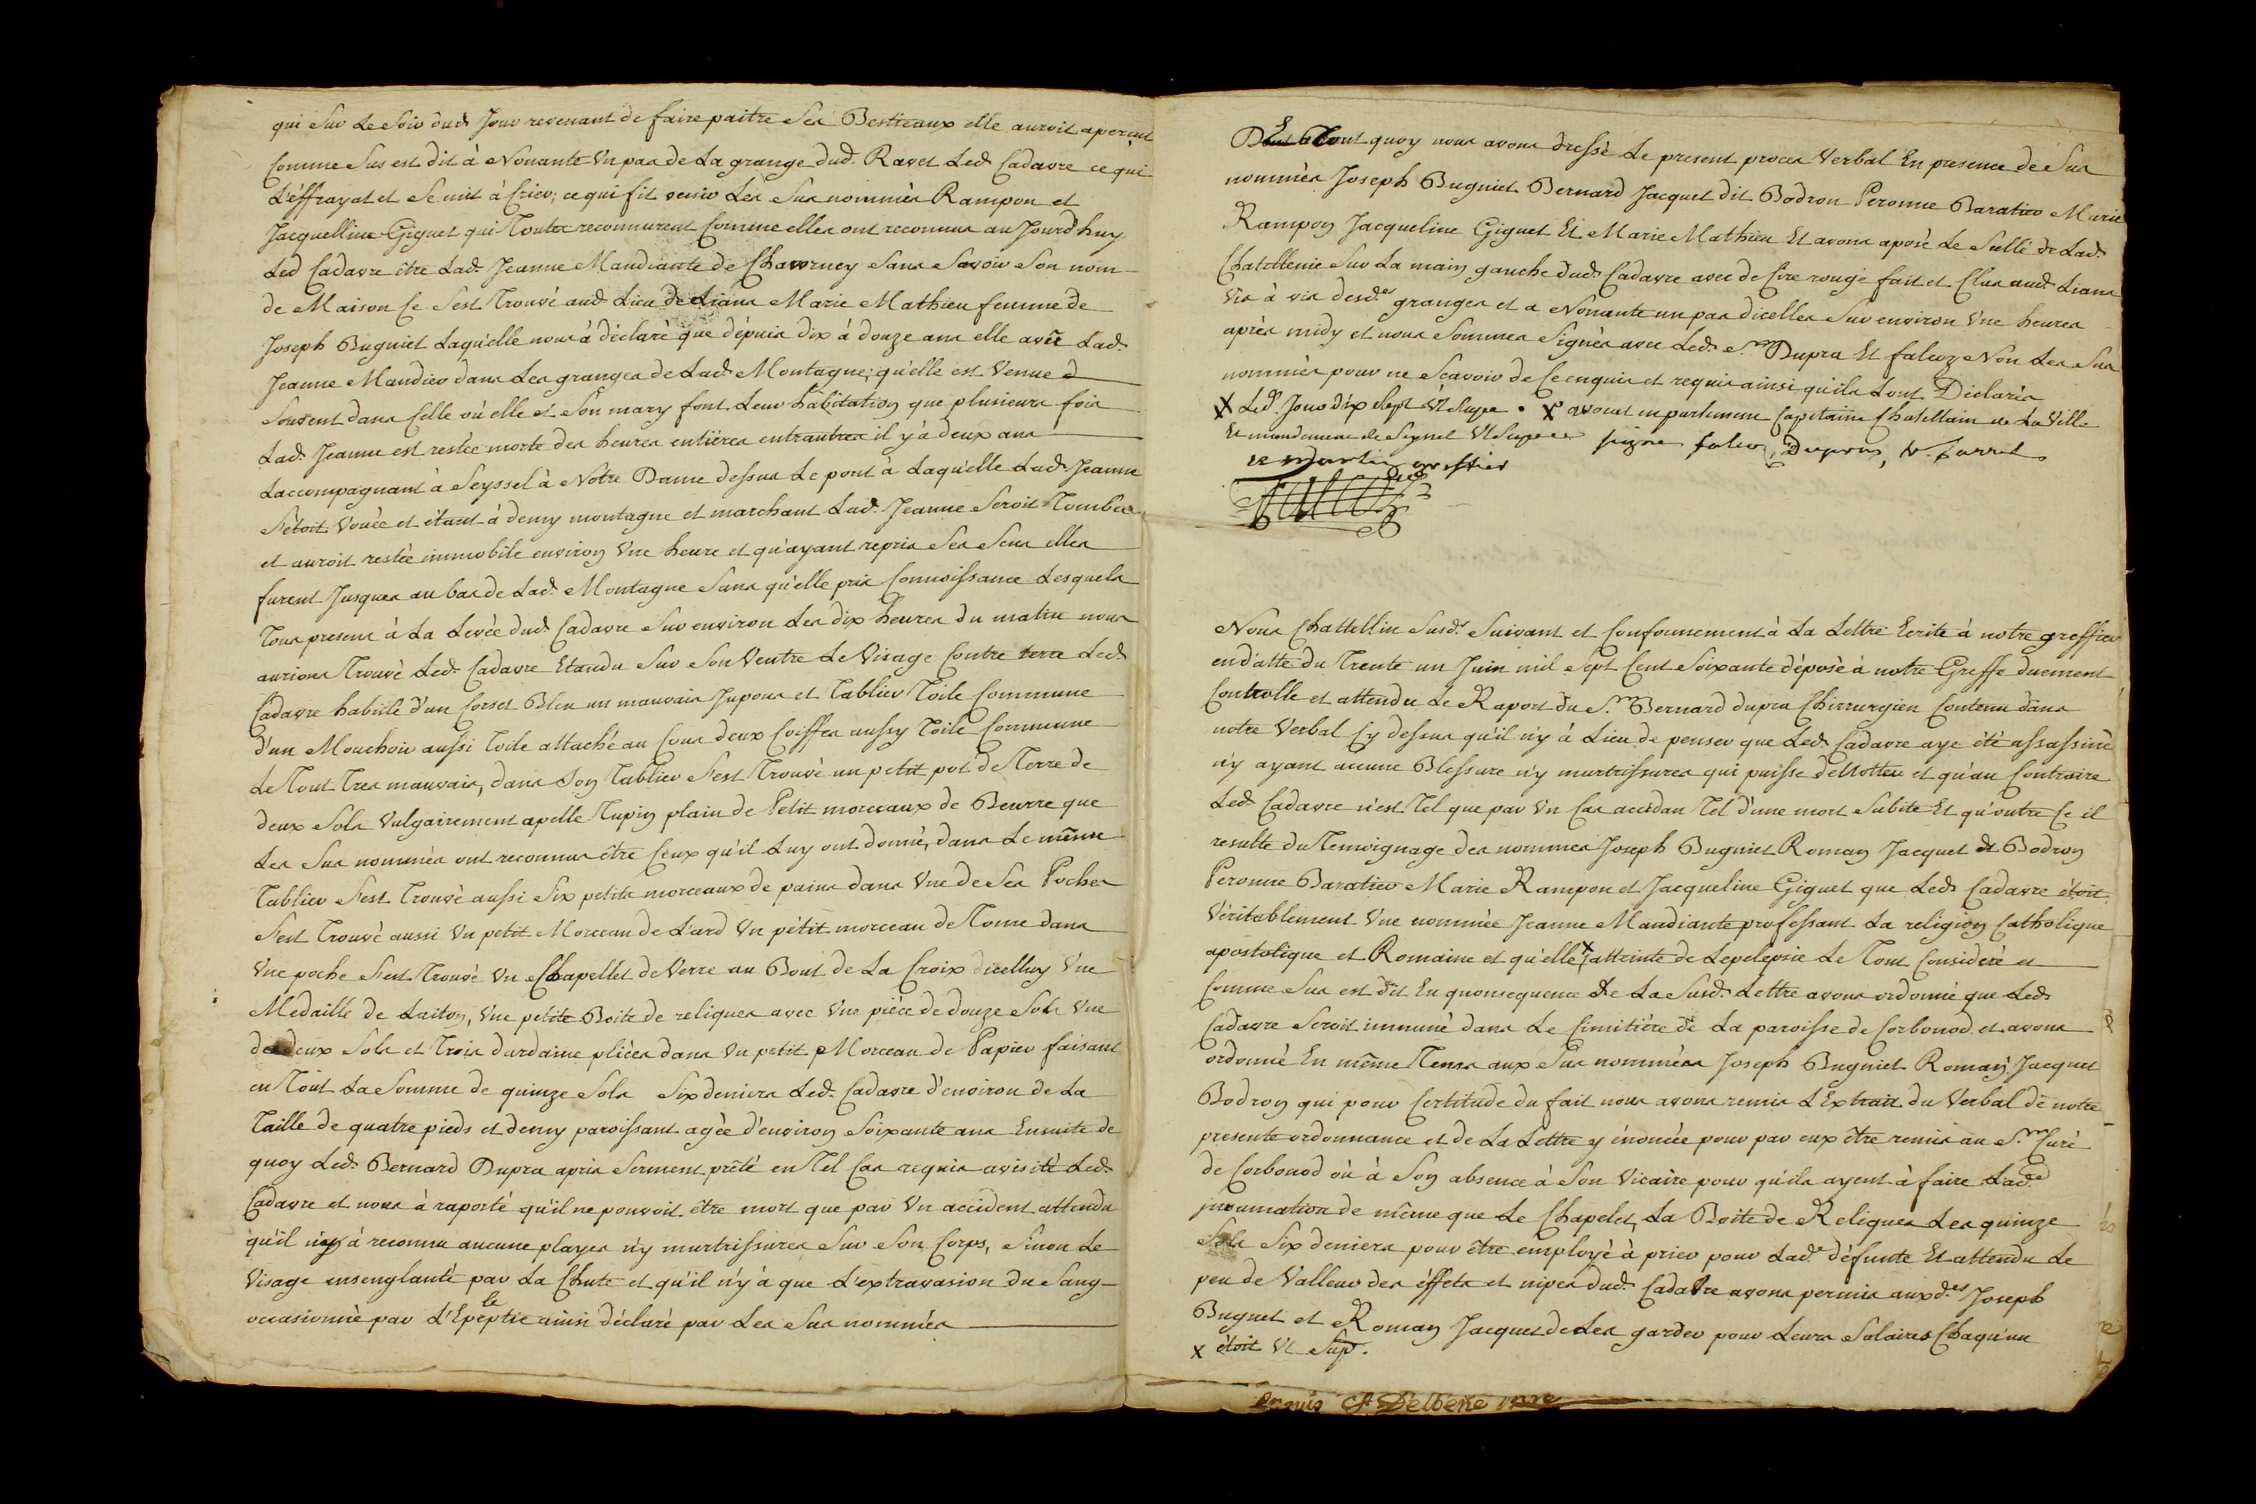 qui sur le soir dud. Jour revenant de faire paitre ses Bestieaux elle auroit aperçut
Comme sus est dit à Nonante Un pas de La grange dud. Ravet Led. Cadavre ce qui
L'éffrayat et se mit à Crier; ce qui fit venir Les sus nommés Rampon et
Jacquelline Giguet qui Toutes reconnurent Comme elles ont reconnus au Jourd'huy
Led Cadavre être Lad. Jeanne Mandiante de Chavorney sans savoir son nom
de Maison Ce s'est Trouvé aud. Lieu de Lians Marie Mathieu femme de
Joseph Bugniet Laquelle nous à déclaré que dépuis dix à douze ans elle a Lad.
Jeanne Mandier dans Les granges de Lad. Montagne; qu'elle est Venue
souvent dans Celle où elle et son mary font Leur habitation que plusieurs fois
Lad. Jeanne est restée morte des heures entiéres entrautres il y'à deux ans
Laccompagnant à Seyssel à Notre Dame dessus Le pont à Laquelle Lad. Jeanne
s'étoit Vouée et étant à demy montagne et marchant Lad. Jeanne seroit Tombée
et auroit restée immobile environ Une heure et qu'ayant repris ses sens elles
furent Jusques au bas de Lad. Montagne sans qu'elle pris Connoissance Lesquels
Tous presens à La Levée dud. Cadavre sur environ Les dix heures du matin nous
aurions Trouvé Led. Cadavre Etandu sur son Ventre Le Visage Contre terre Led.
Cadavre habillé d'un Corset Bleu un mauvais Jupons et Tablier Toile Commune
d'un Mouchoir aussi Toile attaché au Cous deux Coiffes aussy Toile Commune
Le Tout Tres mauvais, dans son Tablier s'est Trouvé un petit pot de Terre de
deux sols Vulgairement apellé Tupin plain de Petit morceaux de Beurre que
Les sus nommés ont reconnus être Ceux qu'il Luy ont donné, dans Le même
Tablier s'est Trouvé aussi six petits morceaux de pains dans Une de ses Poches
s'est Trouvé aussi Un petit Morceau de Lard Un petit morceau de Tome dans
Une poche s'est Trouvé Un Chapellet de Verre au Bout de La Croix dicelluy Une
Medaille de Laiton, Une petite Boite de reliques avec Une piéce de douze sols Une
de deux sols et Trois dardaine pliées dans Un petit Morceau de Papier faisant
en Tout La somme de quinze sols six deniers Led. Cadavre d'environ de La
Taille de quatre pieds et demy paroissant agée d'environ soixante ans Ensuite de
quoy Led. Bernard Dupra apris serment prêté en Tel Cas requis a visité Led.
Cadavre et nous à raporté qu'il ne pouvoit être mort que par Un accident attendu
qu'il n'y à reconnu aucune playes n'y murtrissures sur son Corps, sinon Le
Visage ensenglanté par La Chute et qu'il n'y à que L'extravasion du sang
le
occasionnée par L'Epeptie ainsi déclaré par Les sus nommés
Tout quoy nous avons dressé Le present proces Verbal En presence de sus
nommés Joseph Bugniet Bernard Jacquet dit Bodron Peronne Baratier Marie
Rampon Jacqueline Giguet Et Marie Mathieu Et avons aposé Le sellé de Lad.
Chatellenie sur La main gauche dud. Cadavre avec de Cire rouge fait et Clus aud. Lians
Vis à vis desd. granges et a Nonante un pas dicelles sur environ Une heures
après midy et nous sommes signés avec Led. s.r Dupra Et falcoz Non Les sus
nommés pour ne sçavoir de Ce enquis et requis ainsi qu'ils Lont Déclarés
X Led. Jour dix sept Ut supra. X avocat en parlement Capitaine Chatellain de La Ville
Et mandement de Seyssel Ut supra signé falcoz, Dupras,
Martin greffier
Nous Chattellin susd. suivant et Conformement à La Lettre Ecrite à notre greffier
en datte du Trente un Juin mil sept Cent soixante déposé à notre Greffe duement
Controlle et attendu Le Raport du s.r Bernard dupra Chirrurgien Contenu dans
notre Verbal Cy dessus qu'il n'y à Lieu de penser que Led. Cadavre aye été assassiné
n'y ayant aucune Blessure n'y murtrissures qui puisse denotter et qu'au Contraire
Led. Cadavre n'est Tel que par Un Cas accidan Tel d'une mort subite Et qu'outre Ce il
resulte du Temoignage des nommés Joseph Bugniet Roman Jacquet dt Bodron
Peronne Baratier Marie Rampon et Jacqueline Giguet que Led. Cadavre étoit
Véritablement Une nommée Jeanne Mandiante professant La religion Catholique
apostolique et Romaine et qu'elle X atteinte de Lepelepsie Le Tout Consideré et
Comme sus est dit En quonsequence de La susd. Lettre avons ordonné que Led.
Cadavre seroit immuné dans Le Cimitiére de La paroisse de Corbonod et avons
ordonné En même Tems aux sus nommés Joseph Bugniet Roman Jacquet
Bodron qui pour Certitude du fait nous avons remis L'Extrait du Verbal de notre
presente ordonnance et de La Lettre y énoncée pour par eux être remis au s.r Curé
de Corbonod où à son absence à son Vicaire pour qu'ils ayent à faire Lad.
inumation de même que Le Chapelet, La Boite de Reliques Les quinze
sols six deniers pour être employé à prier pour Lad. défunte Et attendu Le
peu de Valleur des éffets et nipes dud. Cadavre avons permis auxd. Joseph
Bugnet et Roman Jacquet de Les garder pour Leurs salaires Chaqu'un
X étoit Ut sup.